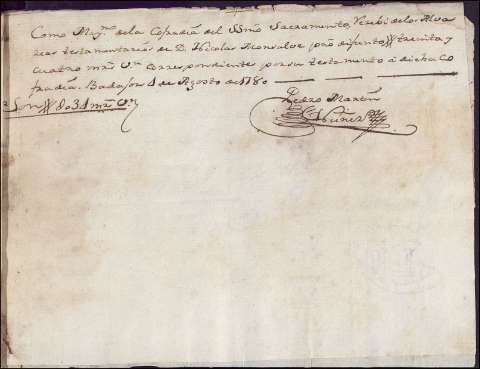 Como My.mo de la Cofradia del SSmo Sacramento, Recibi de los Alva
ceas testamentarios de D. Nicolas Gonsalves difunto treinta y
quatro mrs Vn correspondientes por su testamento a dicha Co
fradia. Badajoz 4 de Agosto de 1780
Pedro Martin
Nuñez
Son 8034 mrs Vn